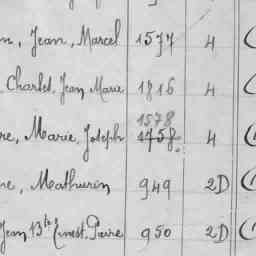 n, Jean, Marcel 1577 4 (
, Charlet, Jean Marie 1816 4 (
1578
re, Marie, Joseph 1758. 4 (
ne, Mathurin 949 2D (
Jean 13te Ernest, Pierre 950 2D (